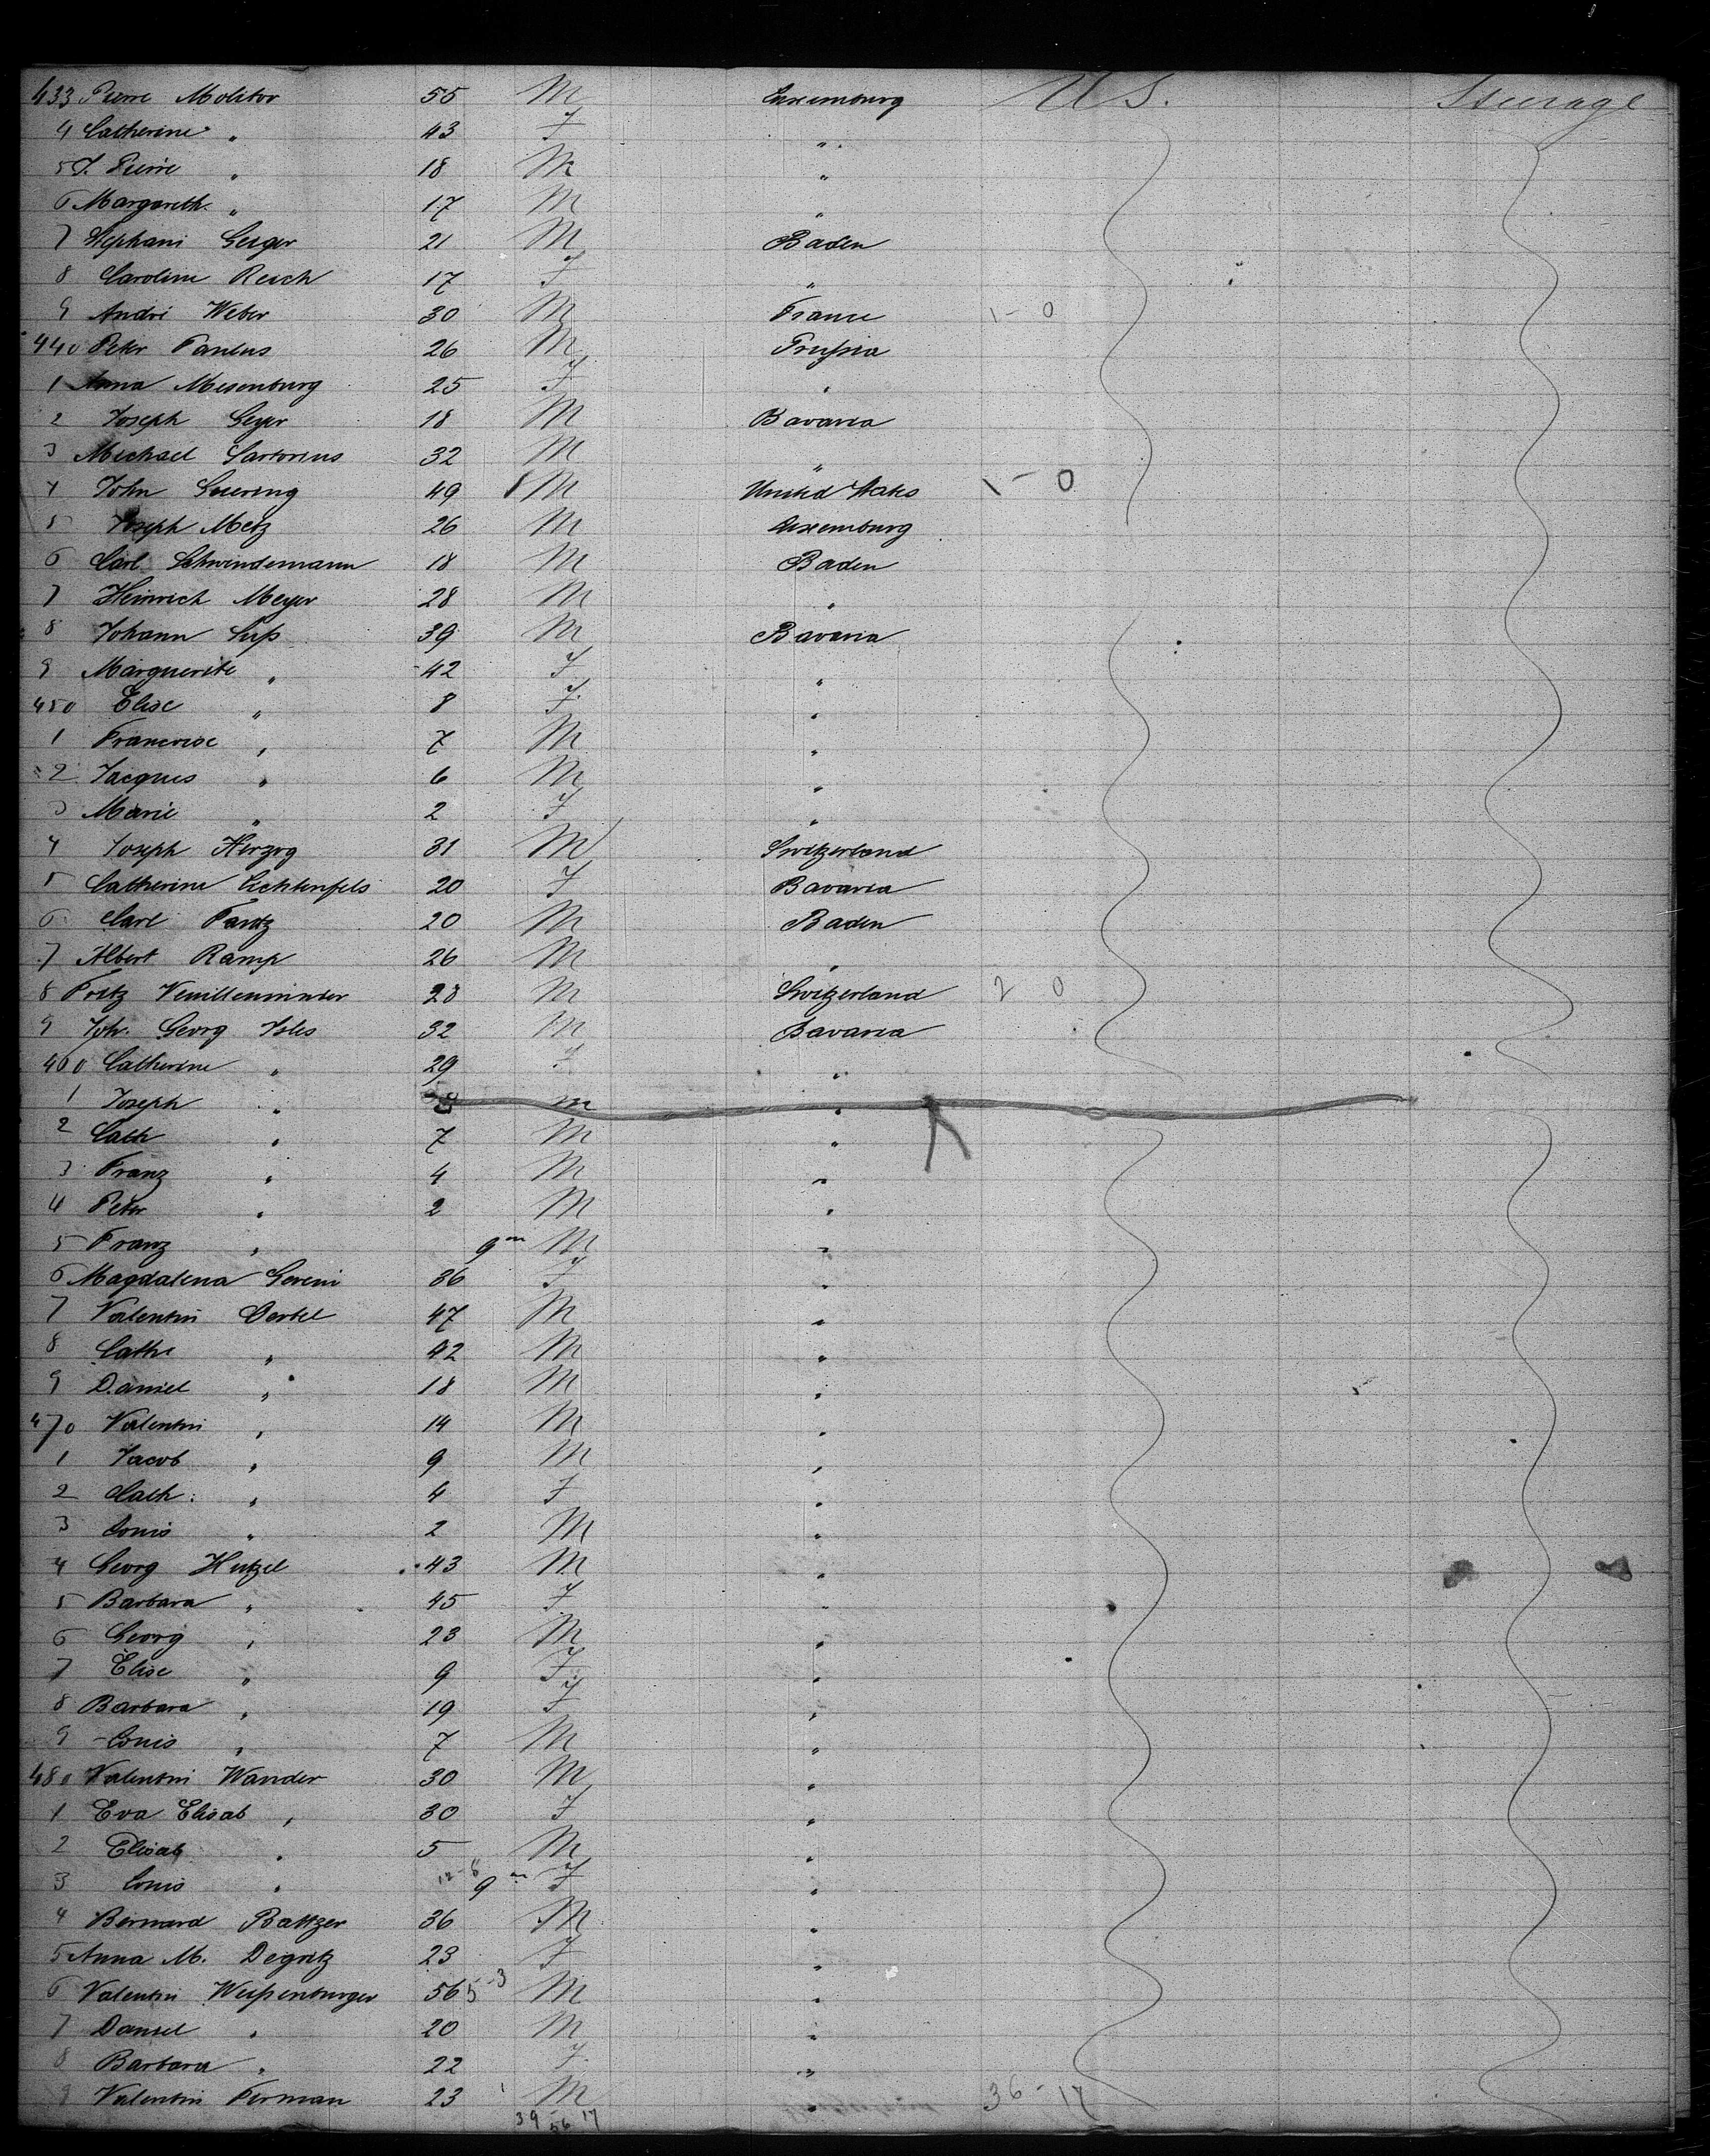 433 Pierre Molitor 55 M Luxemburg U S. Steerage
4 Catherine " 43 F "
5 J. Pierre " 18 M "
6 Margareth. " 17 M "
7 Stephani Geiger 21 M Baden
8 Caroline Reich 17 F "
9 André Weber 30 M France 1 - 0
440 Peter Paulus 26 M Prussia
1 Anna Mesenburg 25 F "
2 Joseph Geyer 18 M Bavaria
3 Michael Sartorius 32 M "
4 John 49 M United States 1 - 0
5 Joseph Metz 26 M Luxemburg
6 Carl Schwindemann 18 M Baden
7 Heinrich Meyer 28 M "
8 Johann Süß 39 M Bavaria
9 Marguerite " 42 F "
450 Elise " 8 F "
1 Francoise " 7 M "
2 Jacques " 6 M "
3 Marie " 2 F "
4 Joseph Herzog 31 M Switzerland
5 Catherine Lichtenfels 20 F Bavaria
6 Carl 20 M Baden
7 Albert Ramp 26 M "
8 28 M Switzerland 2 0
9 Joh. Georg 32 M Bavaria
460 Catherine " 29 F "
1 Joseph " M "
2 Cath " 7 M "
3 Franz " 4 M "
4 Peter " 2 M "
5 Franz " 9 m M "
6 Magdalena 36 F "
7 Valentin Oertel 47 M "
8 Cath " 42 M "
9 Daniel " 18 M "
470 Valentin " 14 M "
1 Jacob " 9 M "
2 Cath: " 4 F "
3 Louis " 2 M "
4 Georg Hutzel 43 M "
5 Barbara " 45 F "
6 Georg " 23 M "
7 Elise " 9 F "
8 Barbara " 19 F "
9 Louis " 7 M "
480 Valentin Wander 30 M "
1 Eva Elisab " 30 F "
2 Elisab " 5 M "
3 Louis " 9 m F "
4 Bernard Baltzer 36 M "
5 Anna M. Degritz 23 F "
6 Valentin Weißenburger 56 5-3 M "
7 Daniel " 20 M "
8 Barbara " 22 F "
9 Valentin Ferman 23 M " 36 - 17
39 56 17